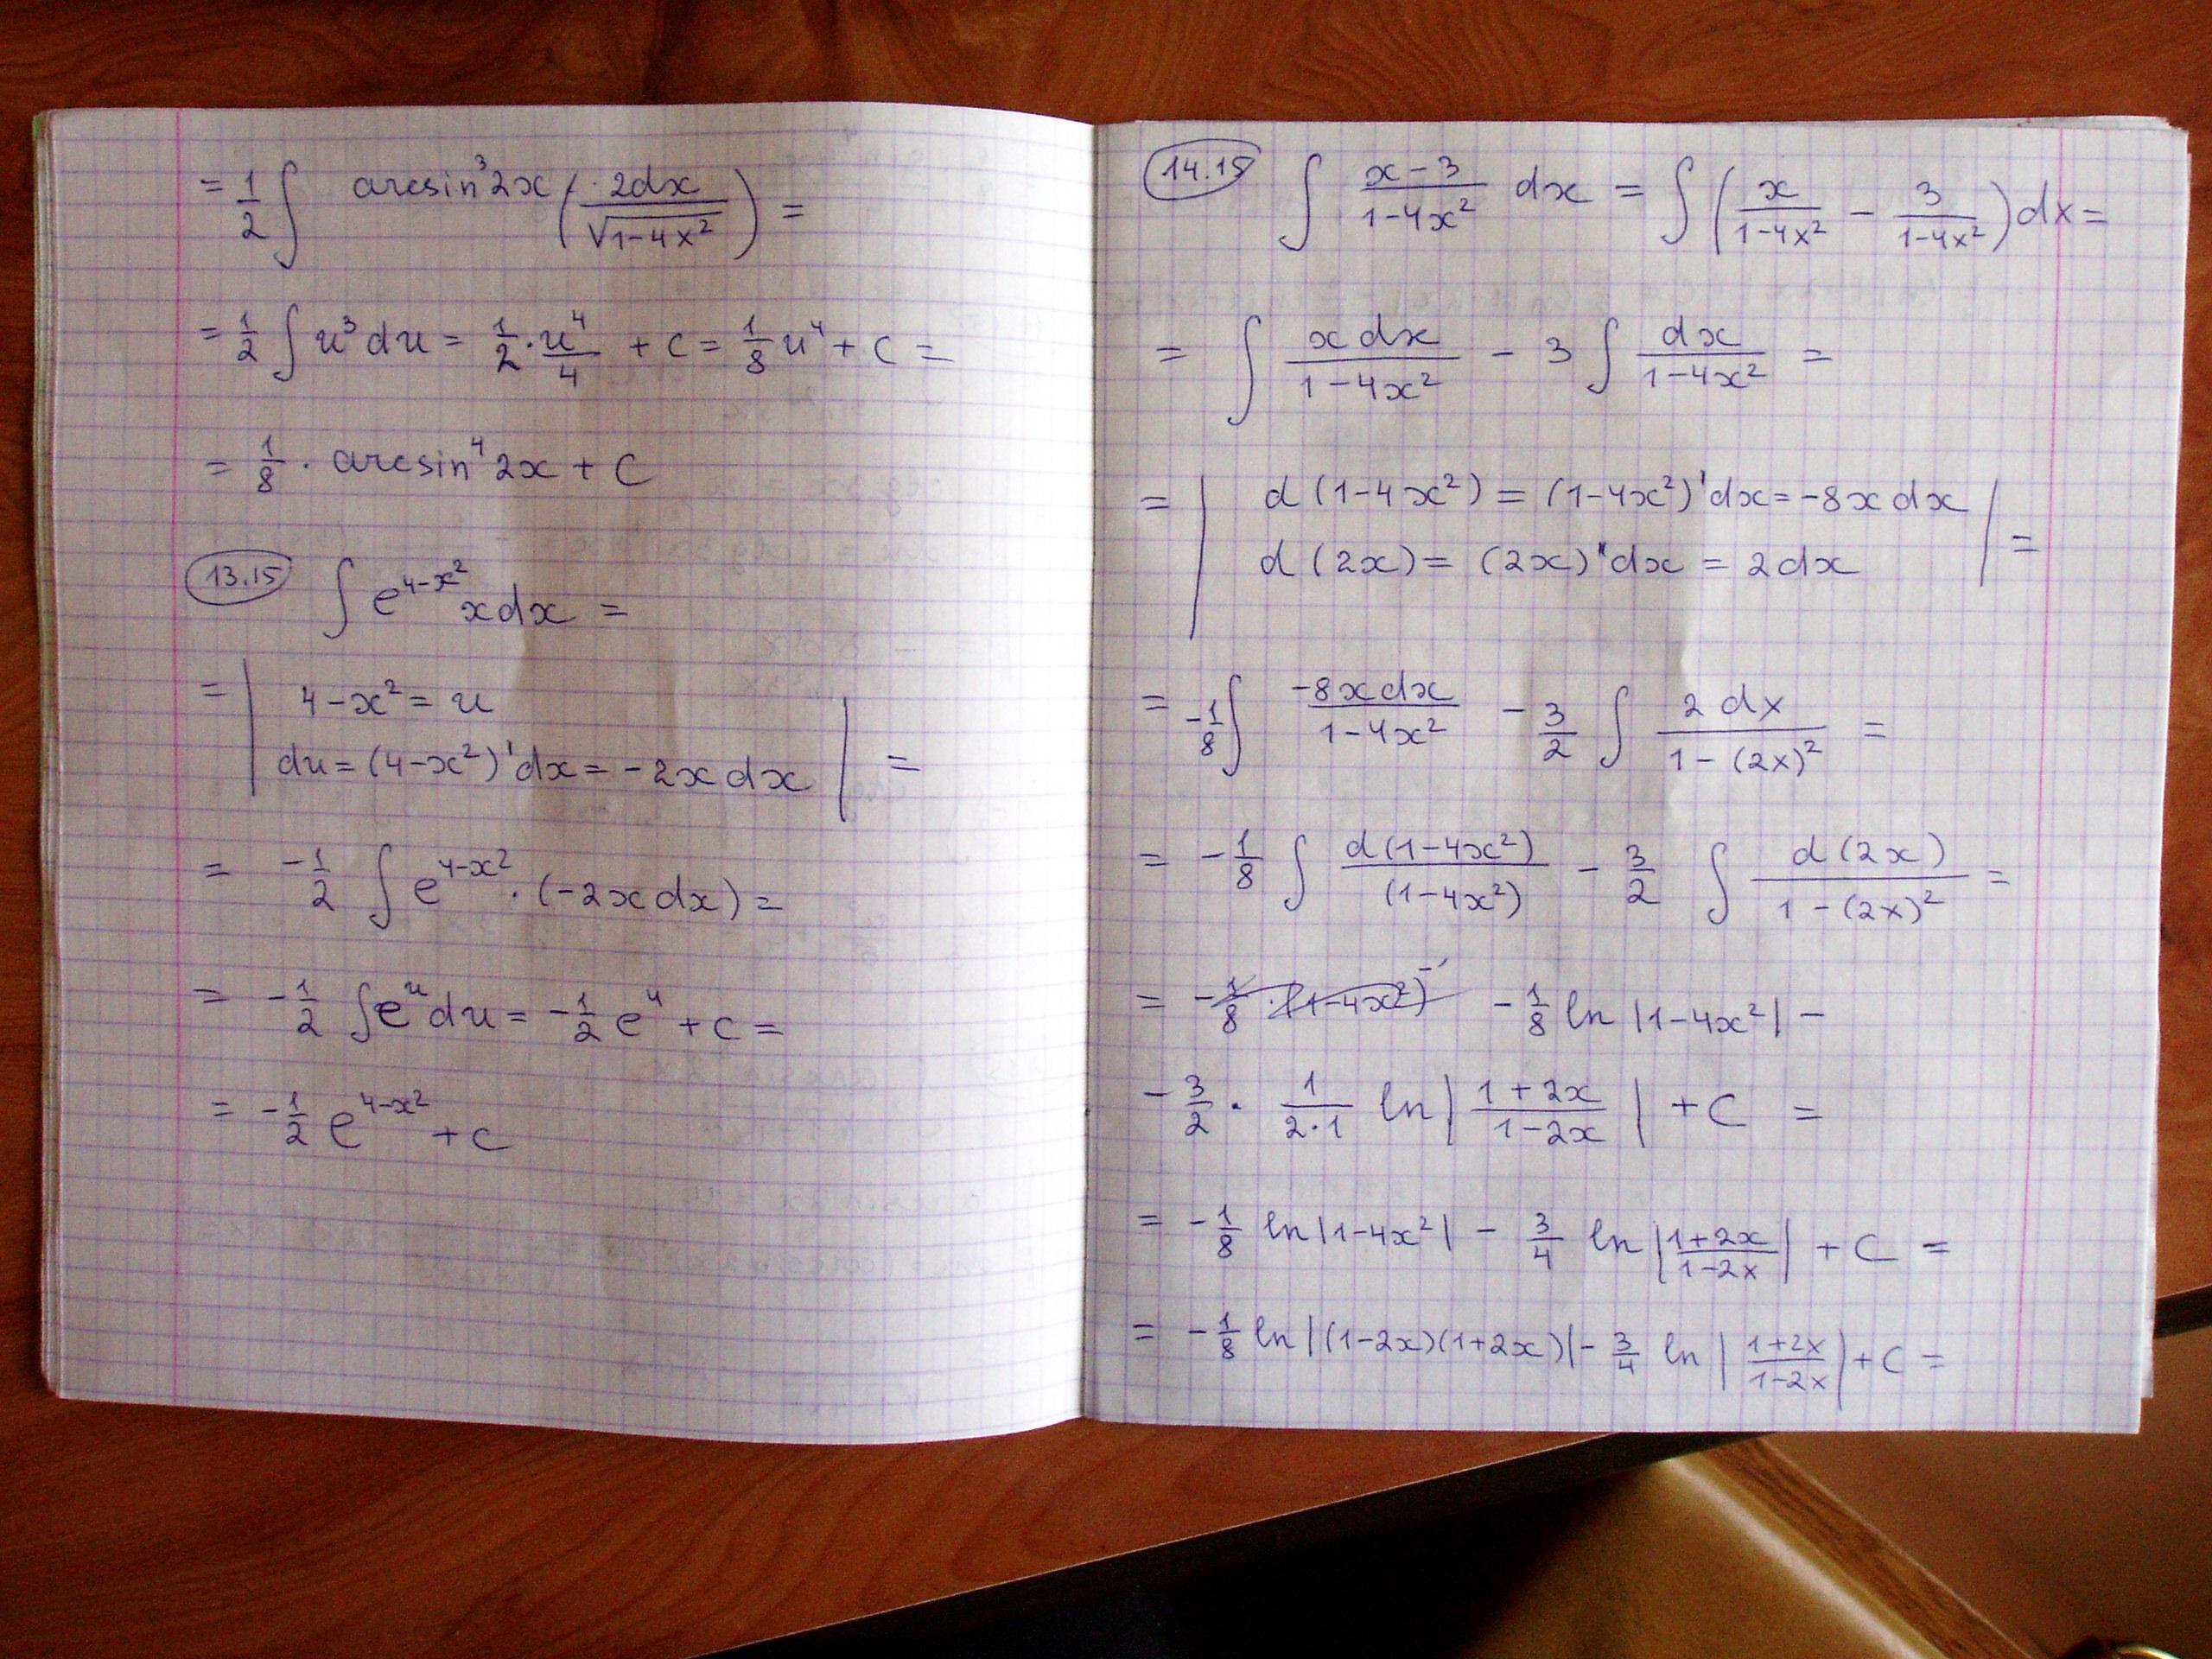 = 1/2 ∫ arcsin³2x (· 2dx / √(1-4x²)) =
= 1/2 ∫ u³du = 1/2 · u⁴/4 + c = 1/8 u⁴ + c =
= 1/8 · arcsin⁴2x + C
13.15 ∫ e^(4-x²) x dx =
= | 4-x² = u
du = (4-x²)'dx = -2x dx | =
= -1/2 ∫ e^(4-x²) · (-2x dx) =
= -1/2 ∫ e^u du = -1/2 e^u + c =
= -1/2 e^(4-x²) + c
14.15 ∫ (x-3)/(1-4x²) dx = ∫ (x/(1-4x²) - 3/(1-4x²)) dx =
= ∫ x dx/(1-4x²) - 3 ∫ dx/(1-4x²) =
= | d(1-4x²) = (1-4x²)'dx = -8x dx | =
d(2x) = (2x)'dx = 2dx
= -1/8 ∫ -8x dx/(1-4x²) - 3/2 ∫ 2 dx/(1-(2x)²) =
= -1/8 ∫ d(1-4x²)/(1-4x²) - 3/2 ∫ d(2x)/(1-(2x)²) =
= -1/8 · (1-4x²)⁻' -1/8 ln |1-4x²| -
- 3/2 · 1/(2·1) ln |(1+2x)/(1-2x)| + C =
= -1/8 ln|1-4x²| - 3/4 ln |(1+2x)/(1-2x)| + C =
= -1/8 ln|(1-2x)(1+2x)| - 3/4 ln |(1+2x)/(1-2x)| + C =